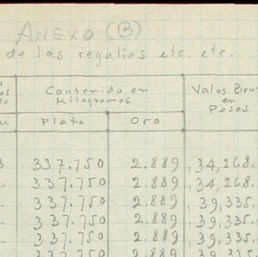 ANEXO (B)
de las regalias etc. etc.
Contenido en Kilogramos
Valores Bru
en
Pesos
Plata Oro
337.750 2.889 34,268.
337.750 2.889 34,268.
337.750 2.889 39,335.
337.750 2.889 39,335.
337.750 2.889 39,335.
337.750 2.889 39,335.